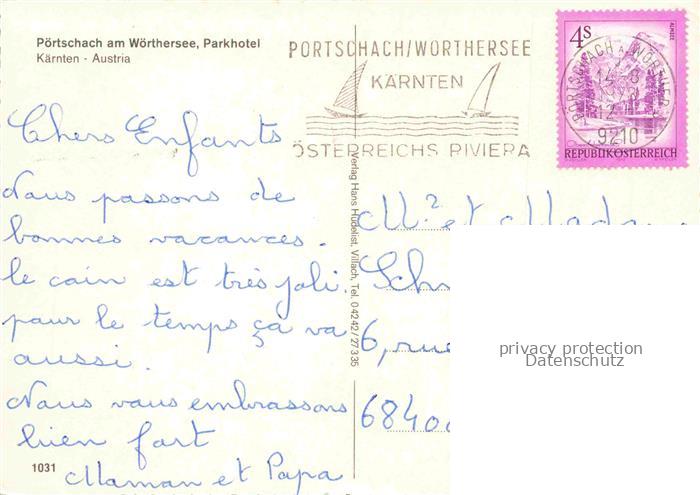 Pörtschach am Wörthersee, Parkhotel
Kärnten - Austria
PÖRTSCHACH/WÖRTHERSEE
KÄRNTEN
ÖSTERREICHS RIVIERA
4S
ALMSEE
PÖRTSCHACH A. WÖRTHER
9210
REPUBLIK ÖSTERREICH
Chers Enfants
Nous passons de
bonnes vacances.
le coin est très joli.
pour le temps ça va
aussi.
Nous vous embrassons
bien fort
Maman et Papa
1031
Verlag Hans Hudelist, Villach, Tel. 04242/27335
Mr et Madam
Sch
6, rue
6840
privacy protection
Datenschutz